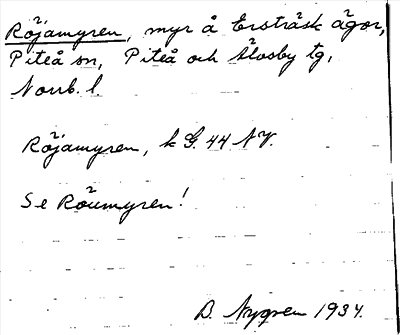 Röjamyren, myr å Ersträsk ägor,
Piteå sn, Piteå och Älvsby tg,
Norrb. l.
Röjamyren, k G. 44 NV.
Se Röumyren!
D. Nygren 1934.